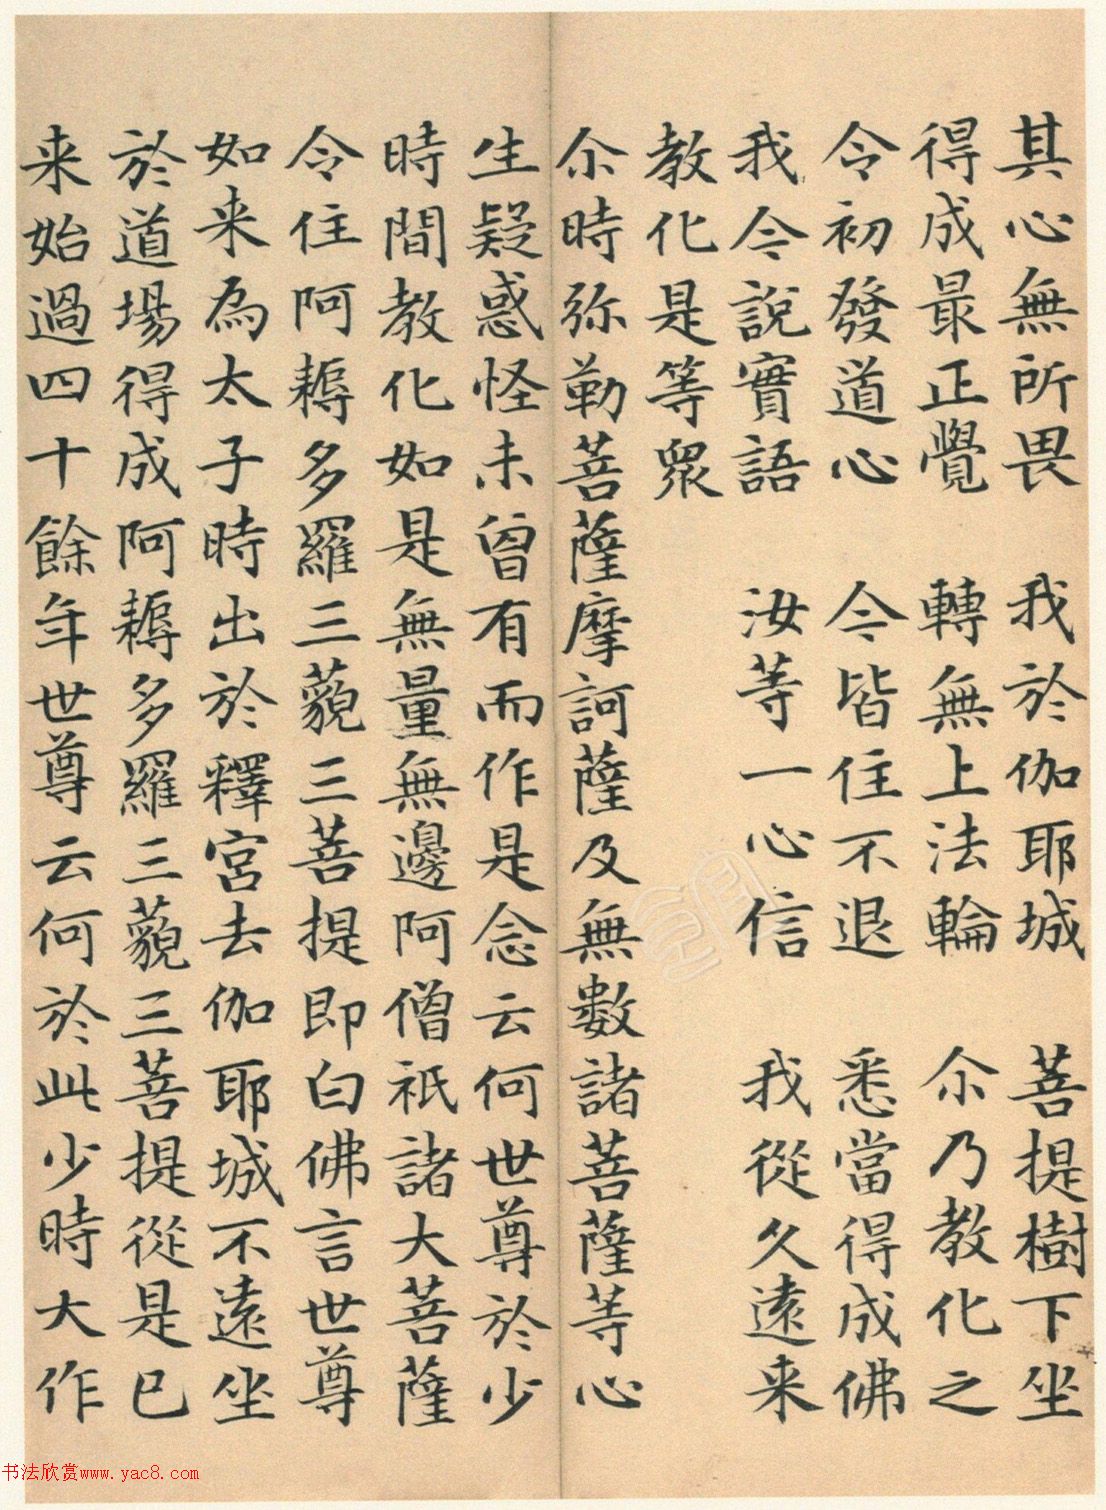 其心無所畏　我於伽耶城　菩提樹下坐
得成最正覺　轉無上法輪　尒乃教化之
令初發道心　今皆住不退　悉當得成佛
我今說實語　汝等一心信　我從久遠来
教化是等衆
尒時弥勒菩薩摩訶薩及無數諸菩薩等心
生疑惑怪未曾有而作是念云何世尊於少
時間教化如是無量無邊阿僧祇諸大菩薩
令住阿耨多羅三藐三菩提即白佛言世尊
如来為太子時出於釋宮去伽耶城不遠坐
於道場得成阿耨多羅三藐三菩提從是已
来始過四十餘年世尊云何於此少時大作
书法欣赏www.yac8.com